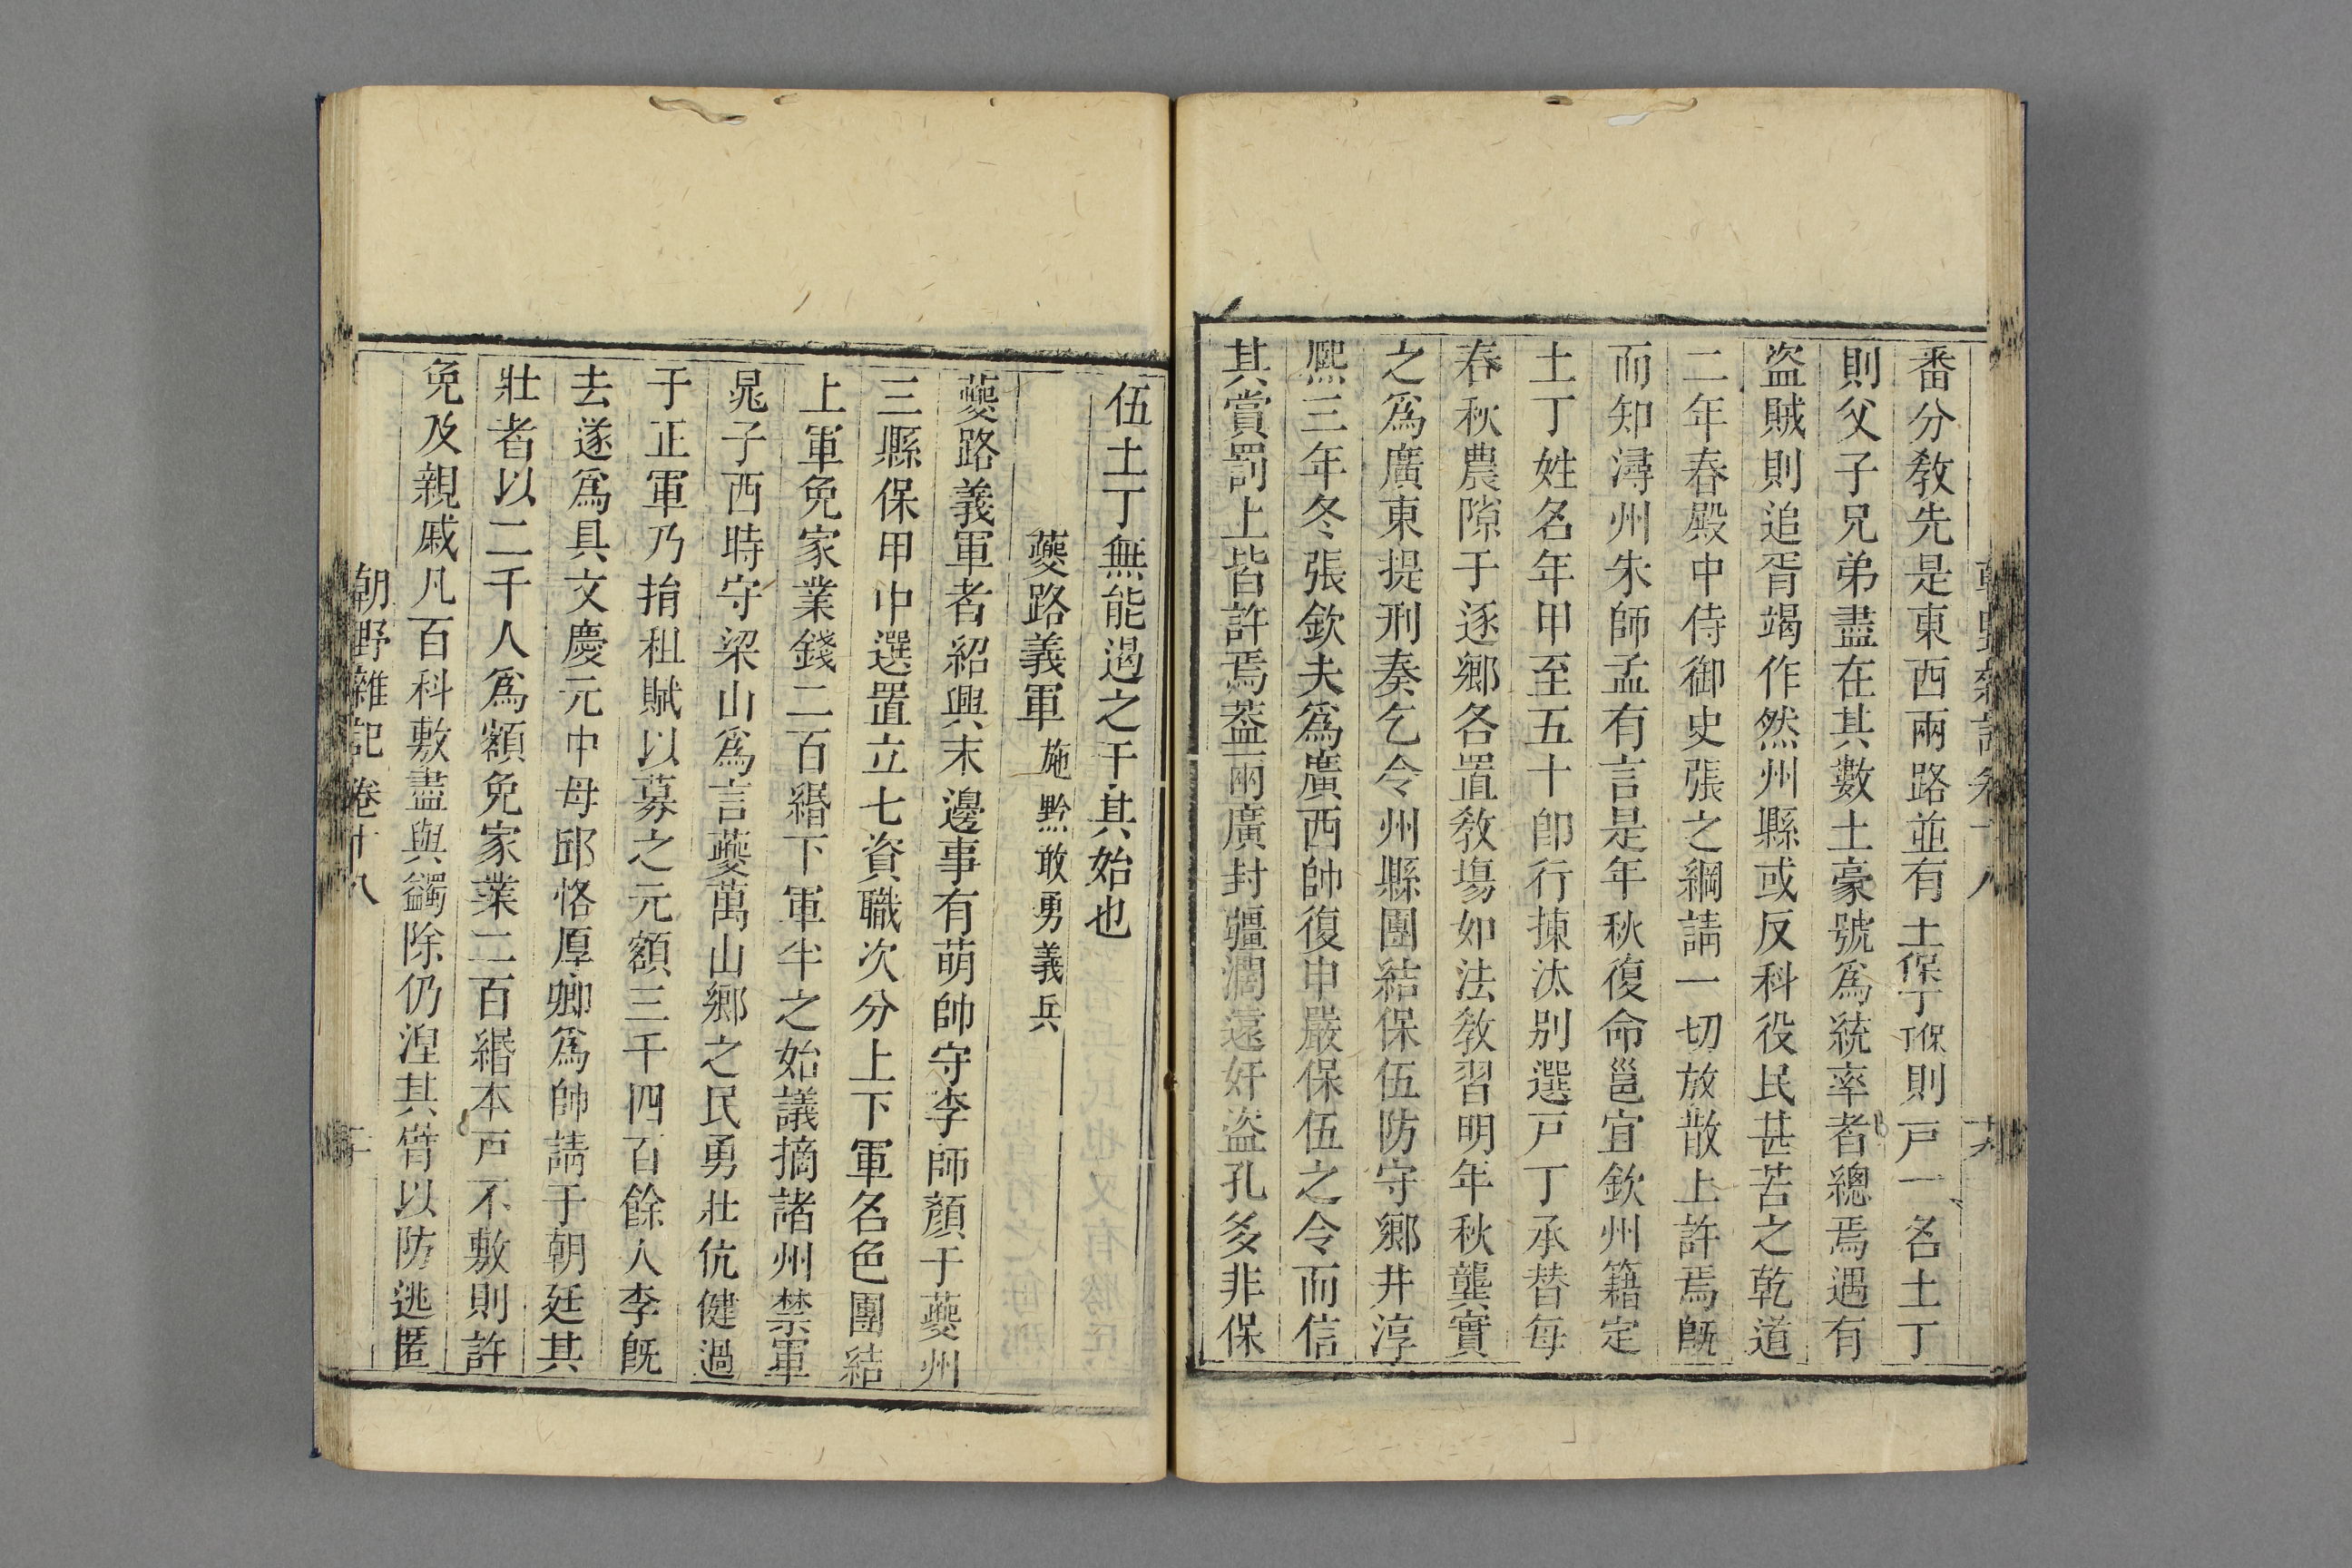 番分敎先是東西兩路並有土丁保丁保則戸一名土丁
則父子兄弟盡在其數土豪號爲統率者總焉遇有
盜賊則追胥竭作然州縣或反科役民甚苦之乾道
二年春殿中侍御史張之綱請一切放散上許焉旣
而知潯州朱師孟有言是年秋復命邕宜欽州籍定
土丁姓名年甲至五十卽行揀汰别選戸丁承替每
春秋農隙于逐郷各置敎塲如法敎習明年秋龔實
之爲廣東提刑奏乞令州縣團結保伍防守郷井淳
熙三年冬張欽夫爲廣西帥復申嚴保伍之令而信
其賞罰上皆許焉葢兩廣封疆濶遠奸盜孔多非保
伍土丁無能遏之于其始也
夔路義軍 施黔敢勇義兵
夔路義軍者紹興末邊事有萌帥守李師顔于夔州
三縣保甲中選置立七資職次分上下軍名色團結
上軍免家業錢二百緡下軍半之始議摘諸州禁軍
晁子西時守梁山爲言夔萬山郷之民勇壯伉健過
于正軍乃捐租賦以募之元額三千四百餘人李旣
去遂爲具文慶元中母邱恪厚卿爲帥請于朝廷其
壯者以二千人爲額免家業二百緡本戸不敷則許
免及親戚凡百科敷盡與蠲除仍湼其臂以防逃匿
朝野雜記 卷十八